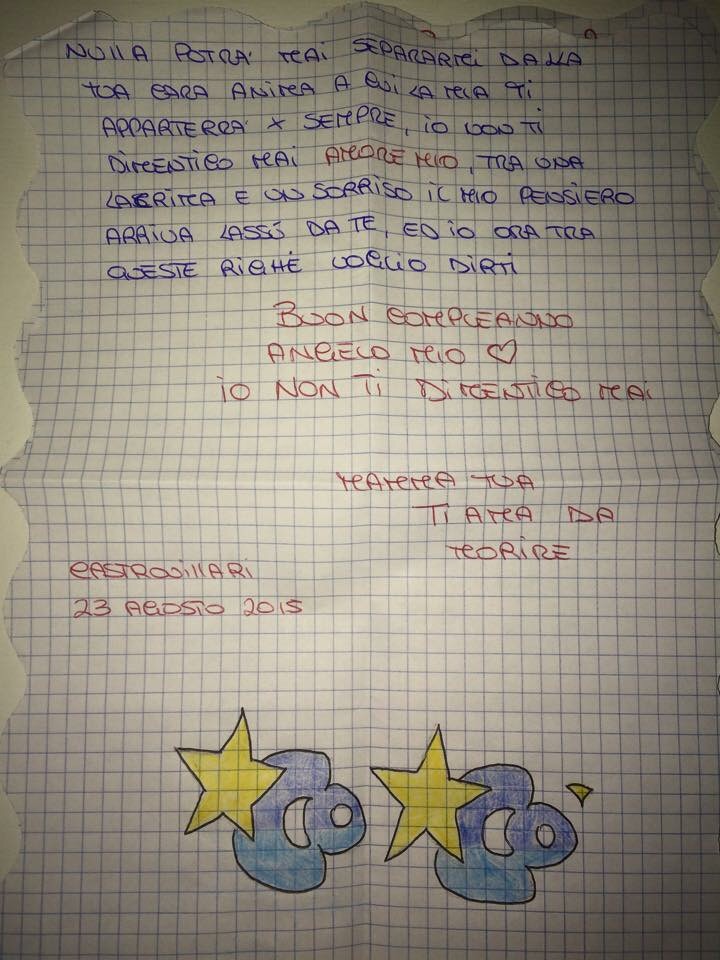 NULLA POTRA' MAI SEPARARMI DALLA
TUA CARA ANIMA A CUI LA MIA TI
APPARTERRA' X SEMPRE, IO NON TI
DIMENTICO MAI AMORE MIO, TRA UNA
LACRIMA E UN SORRISO IL MIO PENSIERO
ARRIVA LASSÙ DA TE, ED IO ORA TRA
QUESTE RIGHE VOGLIO DIRTI
BUON COMPLEANNO
ANGELO MIO ♡
IO NON TI DIMENTICO MAI
MAMMA TUA
TI AMA DA
MORIRE
CASTROVILLARI
23 AGOSTO 2015